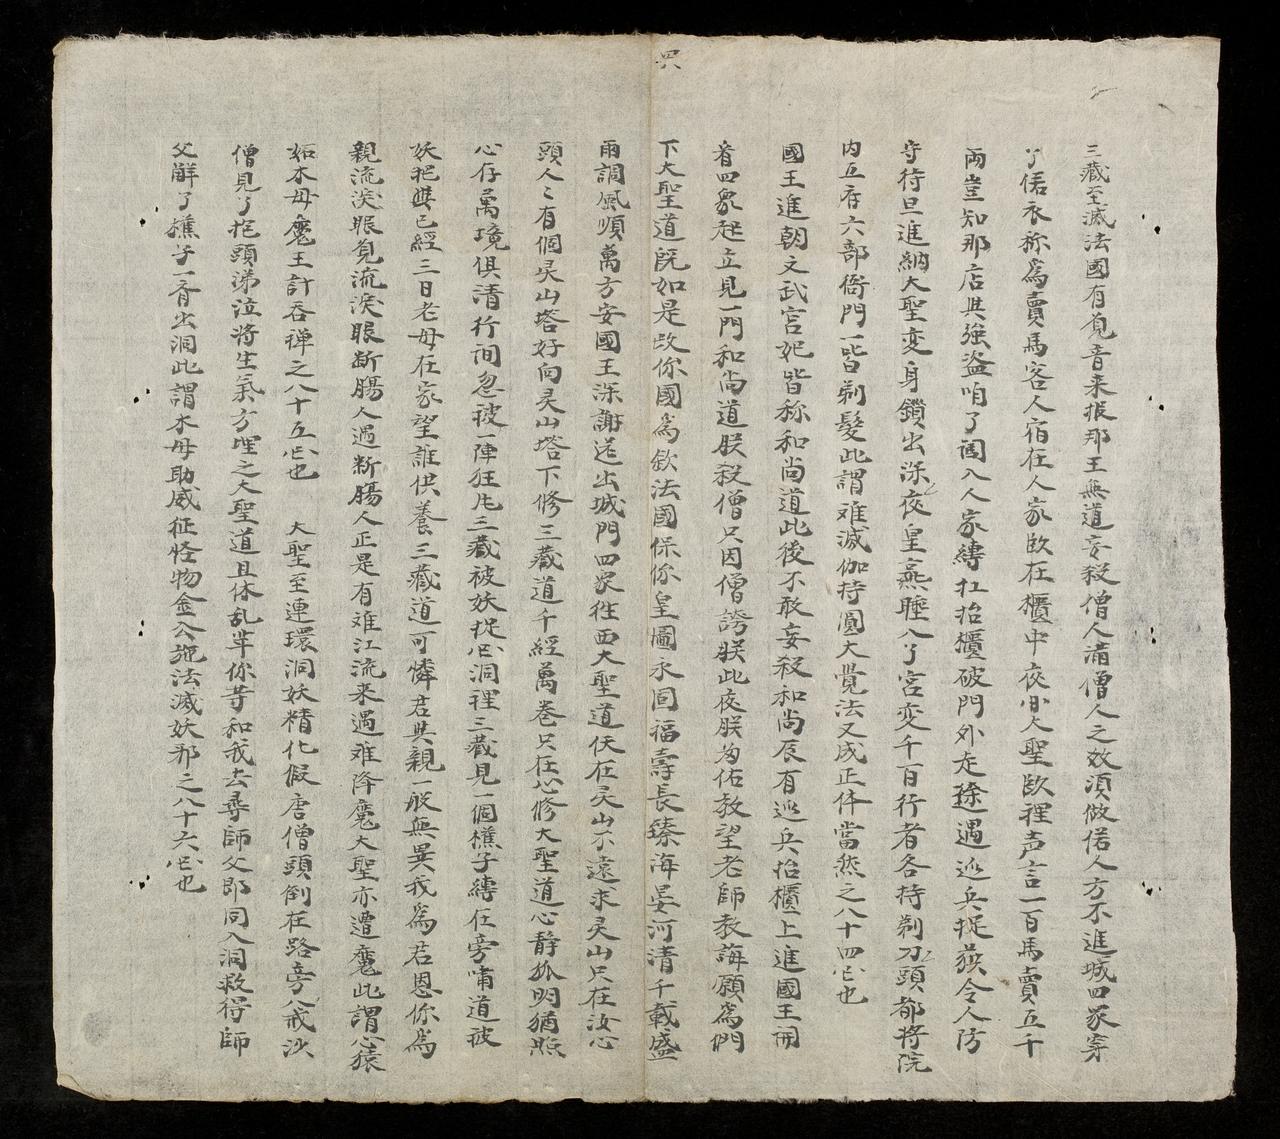 三藏至滅法國有覔音来报那王無道妄殺僧人滿僧人之效須做偌人方不進城四家穿
了偌衣称為賣馬客人宿在人家臥在櫃中夜大聖臥裡声言一百馬賣五千
両豈知那店與強盗咱了闯入人家縛扛抬櫃破門外走途遇巡兵捉获令人防
守待旦進納大聖变身鑽出深夜皇燕睡入了宮变千百行者各持剃刀頭都將院
内五府六部衙門一皆剃髮此謂难滅伽持圓大覺法又成正体當然之八十四也
國王進朝文武宮妃皆称和尚道此後不敢妄殺和尚辰有巡兵抬櫃上進國王開
看四象起立見一門和尚道朕殺僧只因僧誇朕此夜朕为佑敖望老師教誨願為們
下大聖道既如是改你國為欽法國保你皇圖永固福壽長臻海晏河清千載盛
雨調風順萬方安國王深謝送出城門四家徃西大聖道仸在灵山不遠求灵山只在汝心
頭人〻有個灵山塔好向灵山塔下修三藏道千經萬卷只在心修大聖道心静孤明猶照
心存萬境俱清行间忽被一陣狂风三藏被妖捉洞裡三藏見一個樵子縛在旁喃道被
妖把與已經三日老母在家望誰供養三藏道可憐君與親一般無異我為君恩你為
親流淚眼覔流淚眼断腸人遇断腸人正是有难江流来遇难降魔大聖亦遭魔此謂心猿
妬木母魔王計吞禅之八十五也 大聖至連環洞妖精化假唐僧頭倒在路旁八戒沙
僧見了抱頭涕泣将生氣方埋之大聖道且休乱半你等和我去尋師父即同入洞救得師
父解了樵子一齐出洞此謂木母助威征怪物金公施法滅妖邪之八十六也